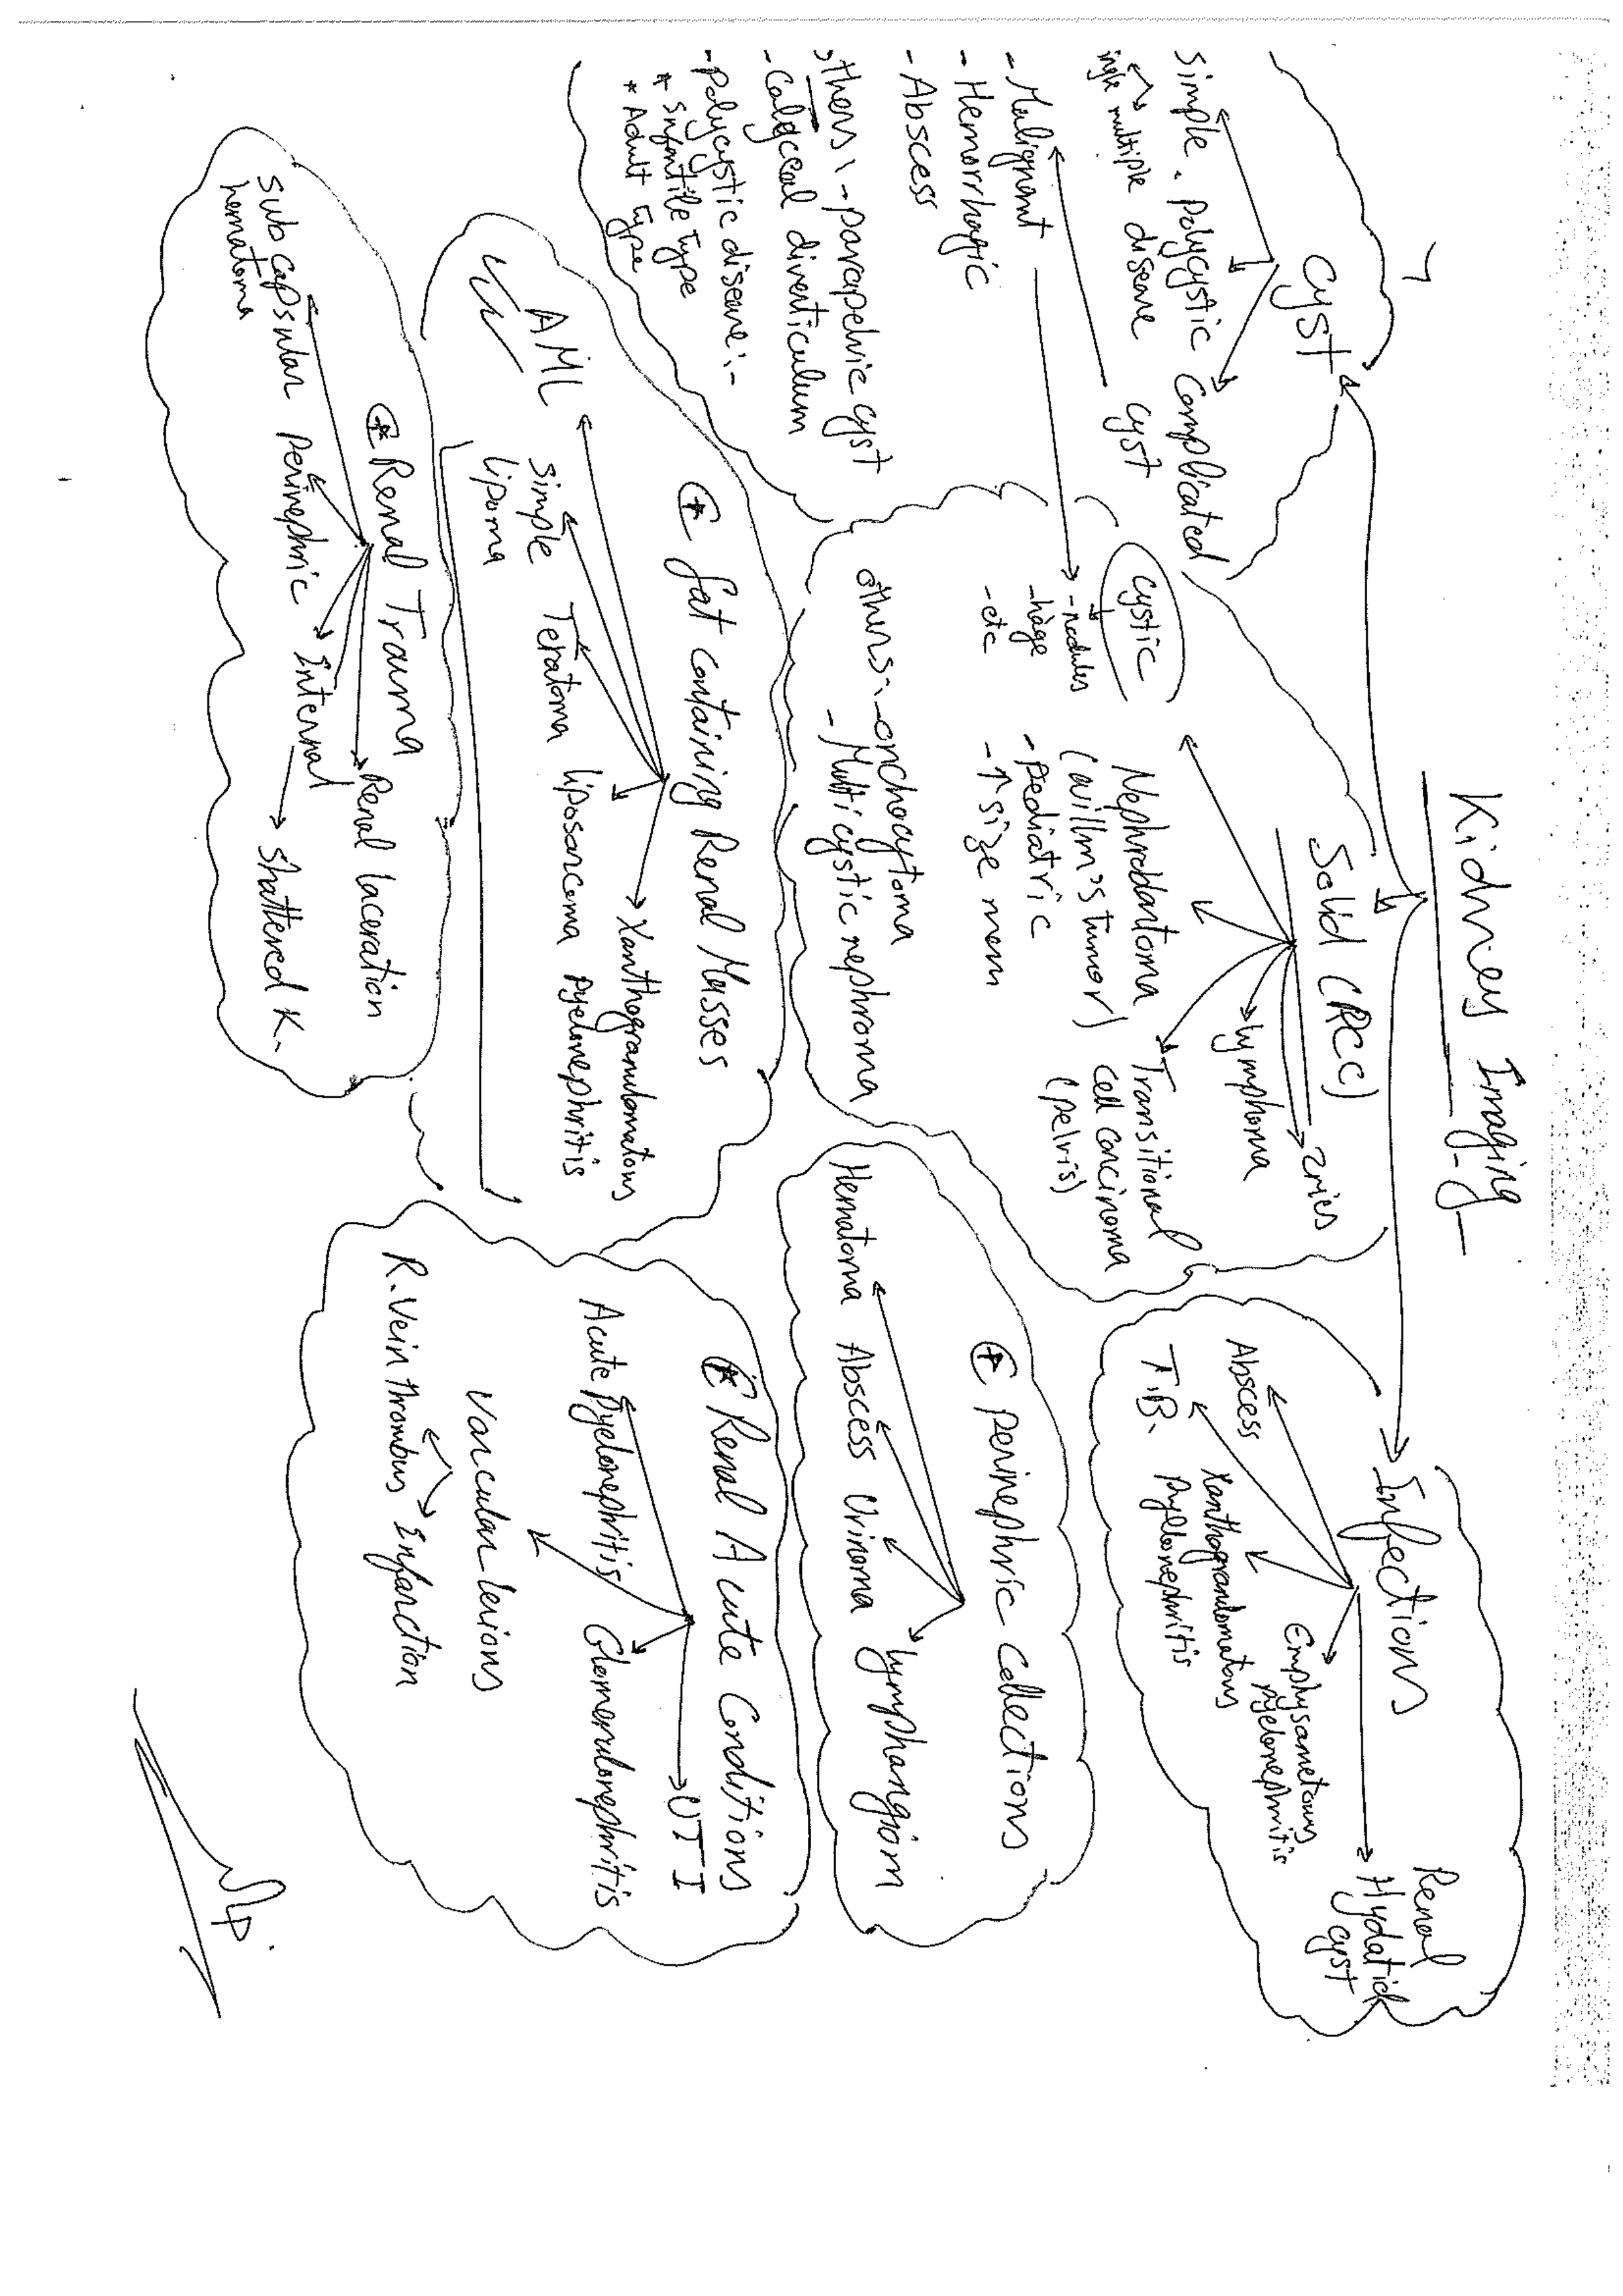 Kidney Imaging
Cyst
Simple
ingle multiple
polycystic
disease
Complicated
cyst
- Malignant
- Hemorrhagic
- Abscess
thers :- parapelvic cyst
- Calyceal diverticulum
- polycystic disease :-
* Infantile type
* Adult type
Solid (RCC)
Cystic
- nodules
- hage
- etc
Nephroblastoma
(willm's tumor)
- pediatric
- ↑ size mem
Transitional
cell carcinoma
(pelvis)
Lymphoma
2ries
others :- onchocytoma
- Multicystic nephroma
Infections
Abscess
T.B.
Xanthogranulomatous
pyelonephritis
Emphysametous
pyelonephritis
Renal
Hydatid
cyst
* perinephric collections
Hematoma Abscess Urinoma Lymphangiom
* fat containing Renal Masses
AML
simple
lipoma
Teratoma
liposarcoma
Xanthogranulomatous
pyelonephritis
* Renal Acute Conditions
Acute pyelonephritis
Glomerulonephritis
UTI
Vascular lesions
R. Vein thrombus Infarction
* Renal Trauma
Sub capsular
hematoma
perinephric
Internal
Renal laceration
Shattered K.